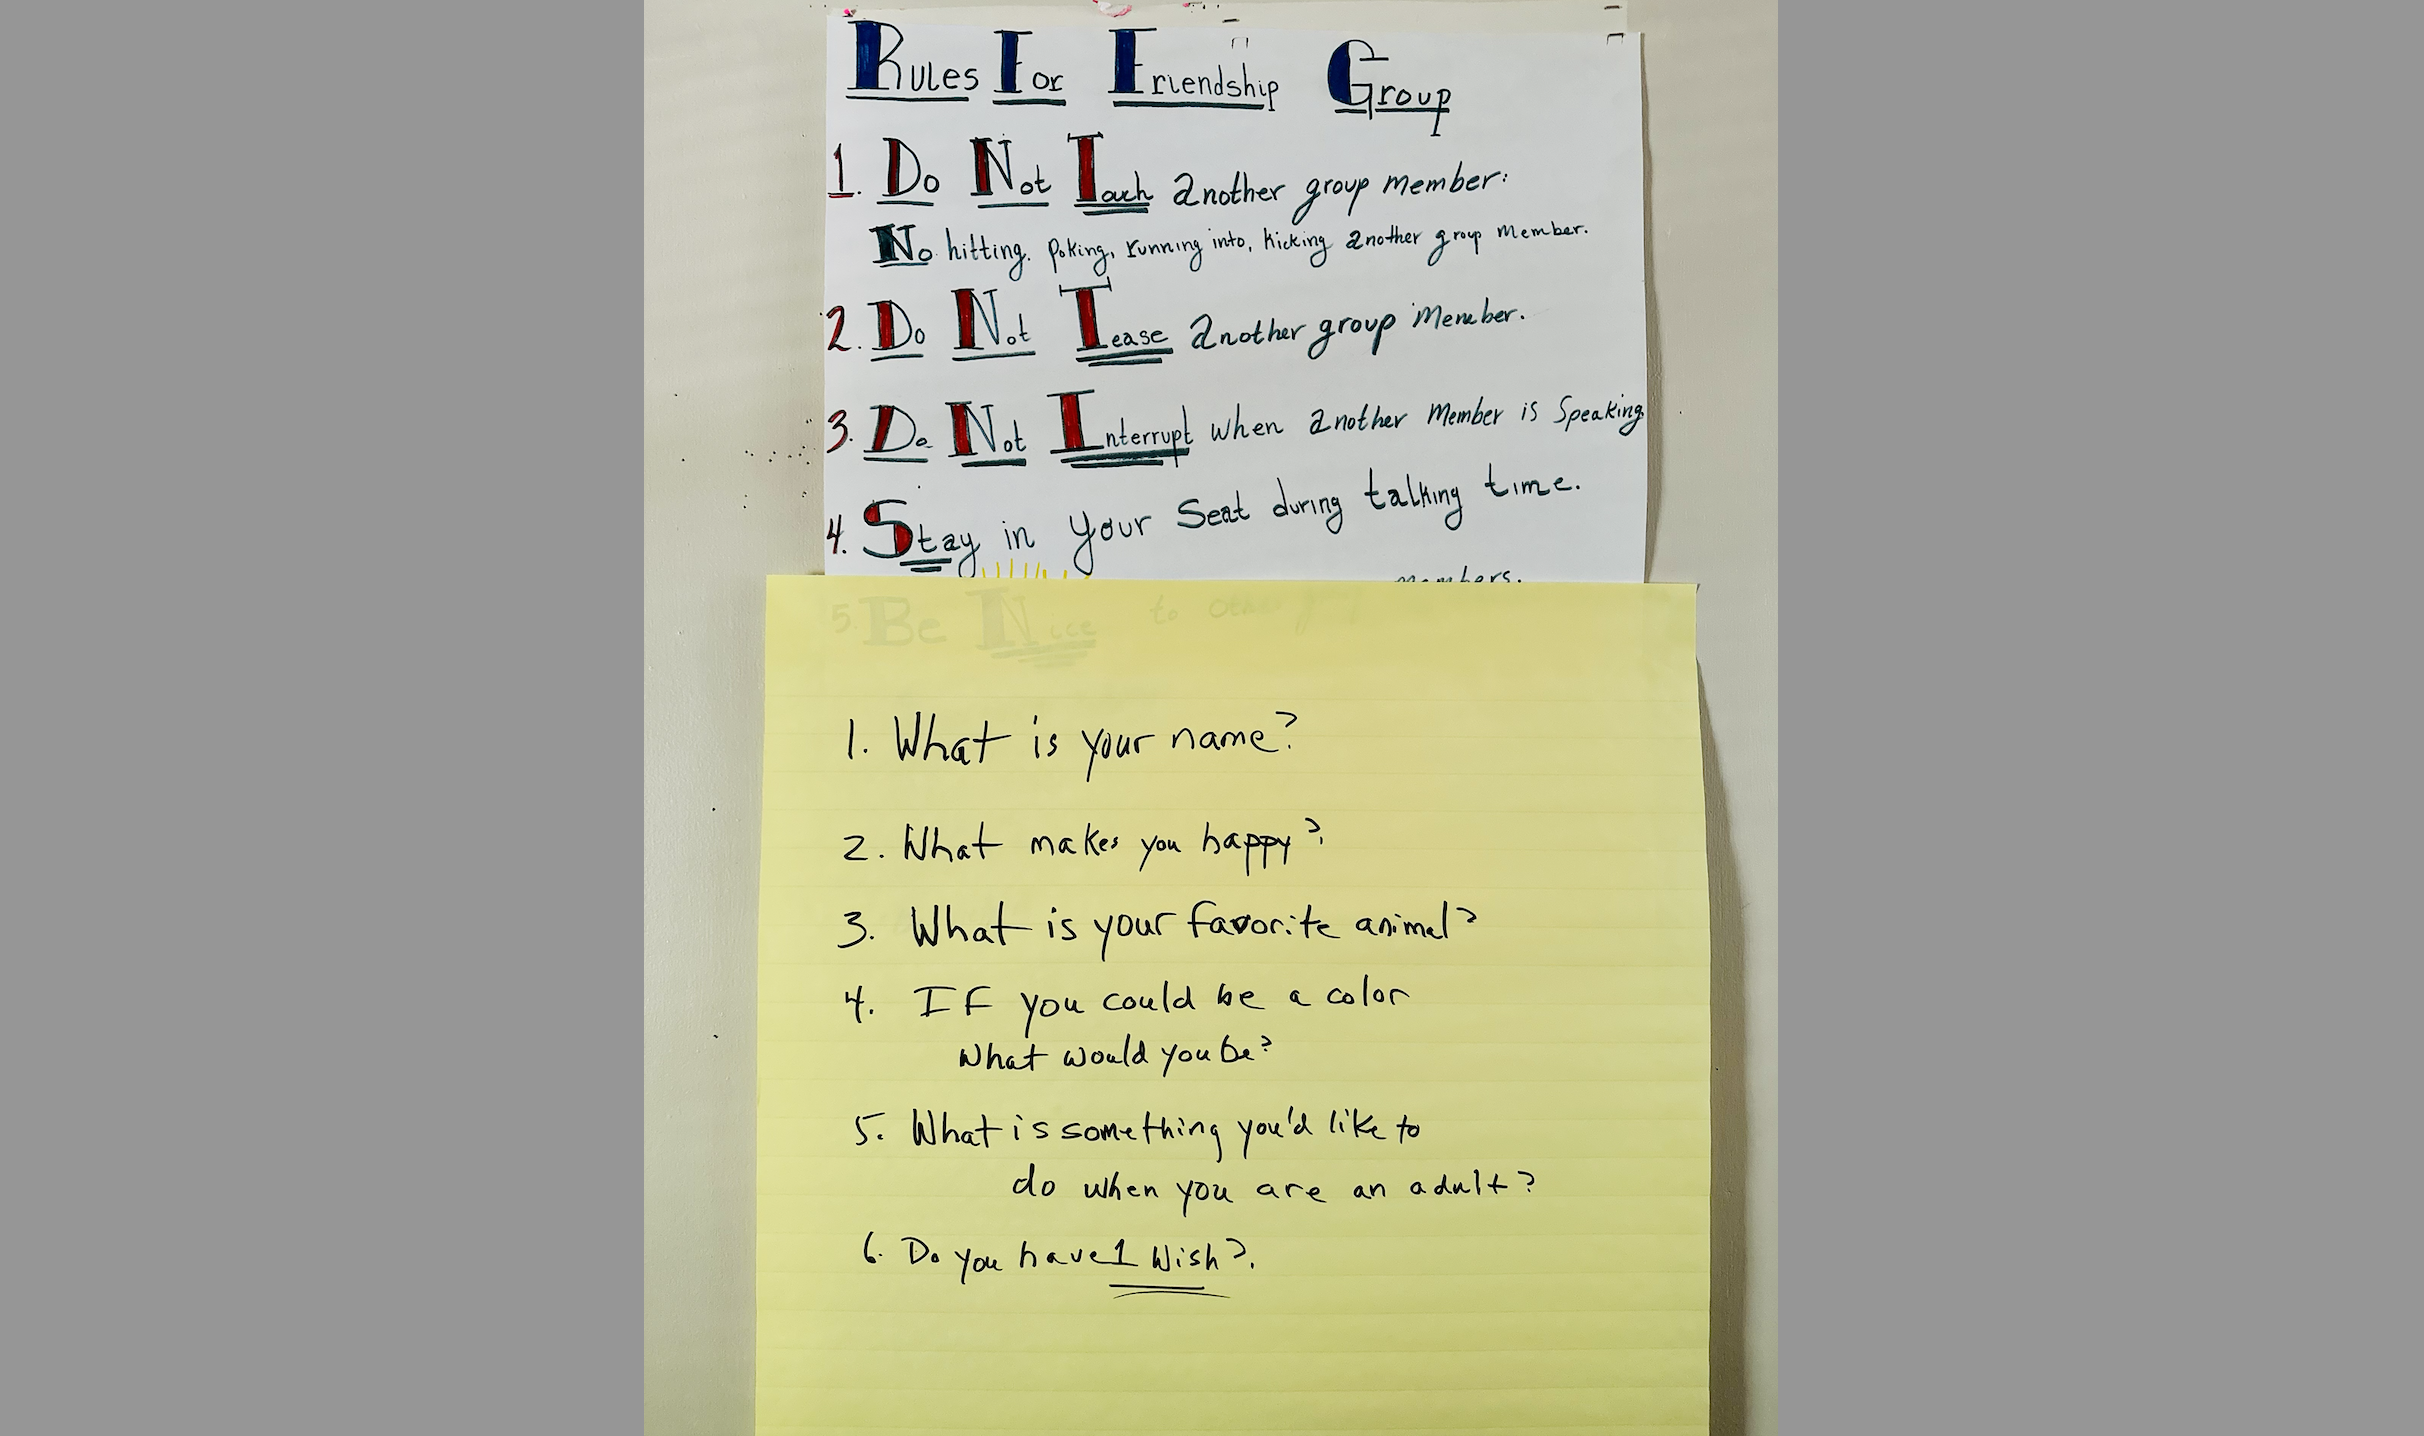 Rules For Friendship Group
1. Do Not Touch another group member:
No hitting. Poking, running into, kicking another group member.
2. Do Not Tease another group member.
3. Do Not Interrupt when another member is Speaking
4. Stay in your Seat during talking time.
members.
5. Be Nice to other
1. What is your name?
2. What makes you happy?
3. What is your favorite animal?
4. IF you could be a color
What would you be?
5. What is something you'd like to
do when you are an adult?
6. Do you have 1 Wish?